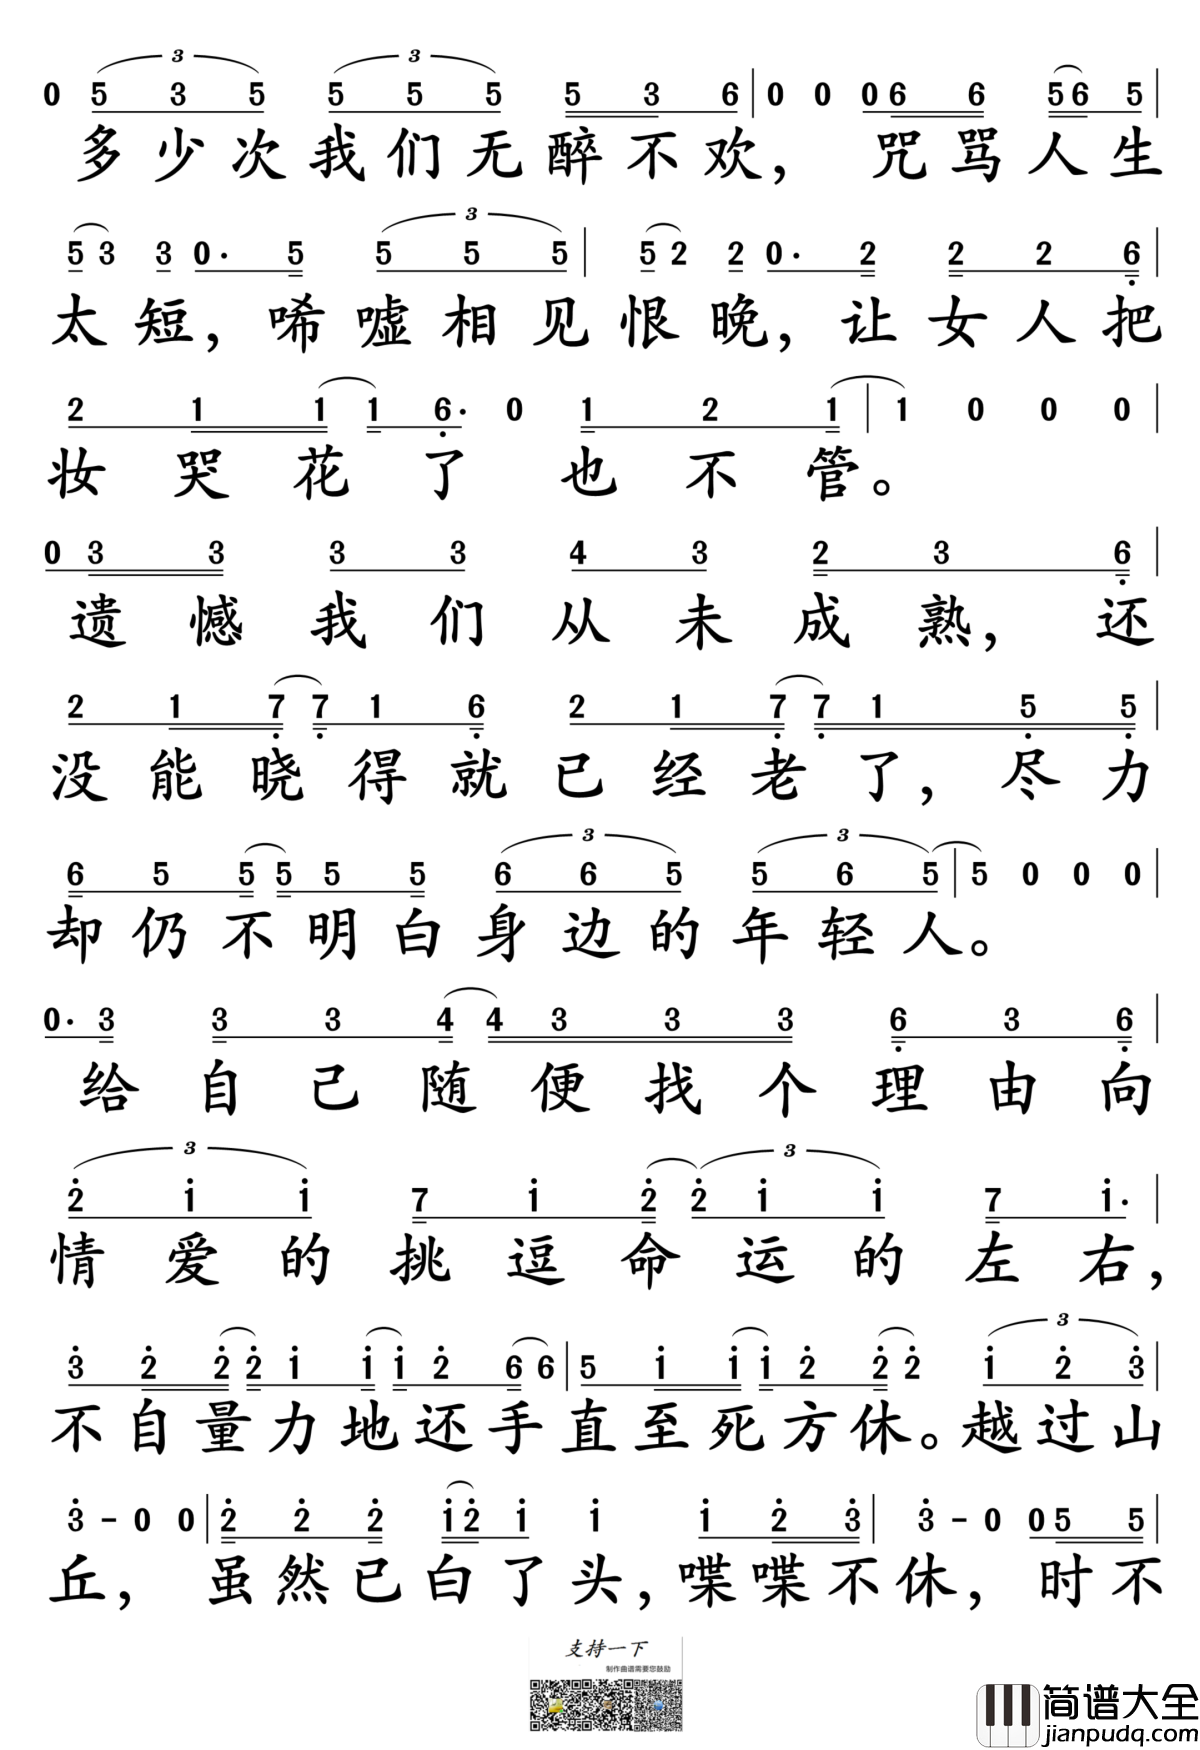 3 3
0 5 3 5 5 5 5 5 3 6 | 0 0 0 6 6 5 6 5 |
多少次我们无醉不欢，咒骂人生
3
5 3 3 0· 5 5 5 5 | 5 2 2 0· 2 2 2 6 |
太短，唏嘘相见恨晚，让女人把
2 1 1 1 6· 0 1 2 1 | 1 0 0 0 |
妆哭花了也不管。
0 3 3 3 3 4 3 2 3 6 |
遗憾我们从未成熟，还
2 1 7 7 1 6 2 1 7 7 1 5 5 |
没能晓得就已经老了，尽力
3 3
6 5 5 5 5 5 6 6 5 5 6 5 | 5 0 0 0 |
却仍不明白身边的年轻人。
0· 3 3 3 4 4 3 3 3 6 3 6 |
给自己随便找个理由向
3 3
2 1 1 7 1 2 2 1 1 7 1· |
情爱的挑逗命运的左右，
3
3 2 2 2 1 1 1 2 6 6 | 5 1 1 1 2 2 2 1 2 3 |
不自量力地还手直至死方休。越过山
3 - 0 0 | 2 2 2 1 2 1 1 1 2 3 | 3 - 0 0 5 5 |
丘，虽然已白了头，喋喋不休，时不
支持一下
制作曲谱需要您鼓励
简谱大全
jianpudq.com